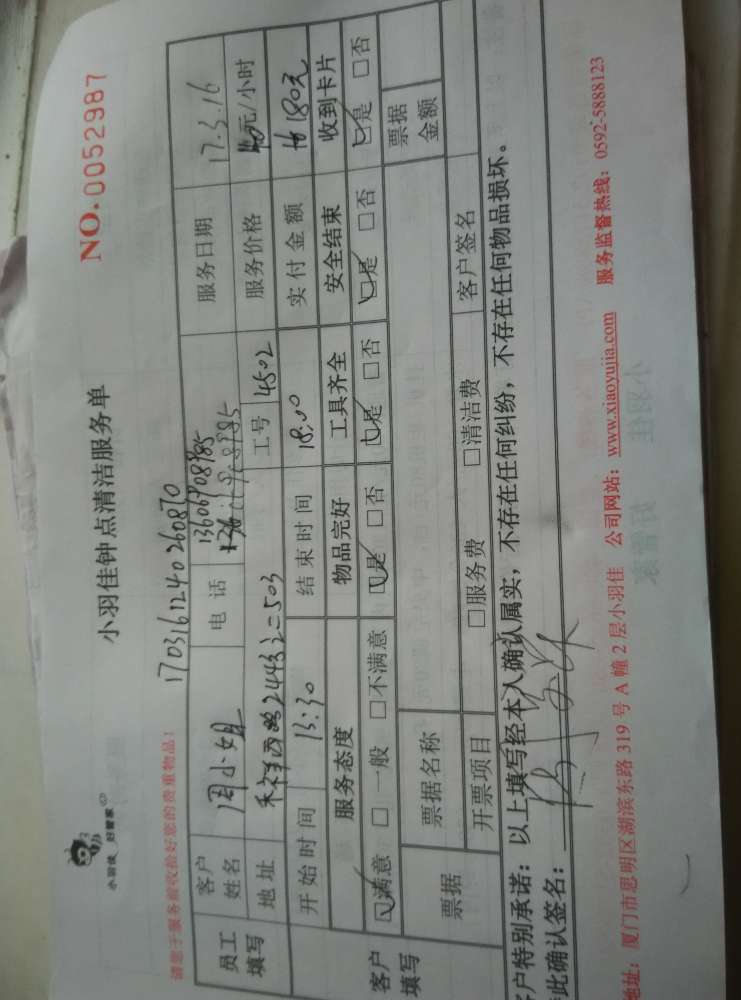 小羽佳 好管家
小羽佳钟点清洁服务单
NO.0052987
请您于服务前收拾好您的贵重物品!
17031612402 60870
员工填写 客户姓名 周小姐 电话 13606908985 服务日期 17.3.16
地址 244号之二503 工号 4502 服务价格 40元/小时
开始时间 13:30 结束时间 18:00 实付金额 180元
客户填写 服务态度 物品完好 工具齐全 安全结束 收到卡片
☑满意 □一般 □不满意 ☑是 □否 ☑是 □否 ☑是 □否 ☑是 □否
票据 票据名称 票据金额
开票项目 □服务费 □清洁费 客户签名
客户特别承诺:以上填写经本人确认属实,不存在任何纠纷,不存在任何物品损坏。
此确认签名:
地址:厦门市思明区湖滨东路319号A幢2层小羽佳 公司网站:www.xiaoyujia.com 服务监督热线:0592-5888123